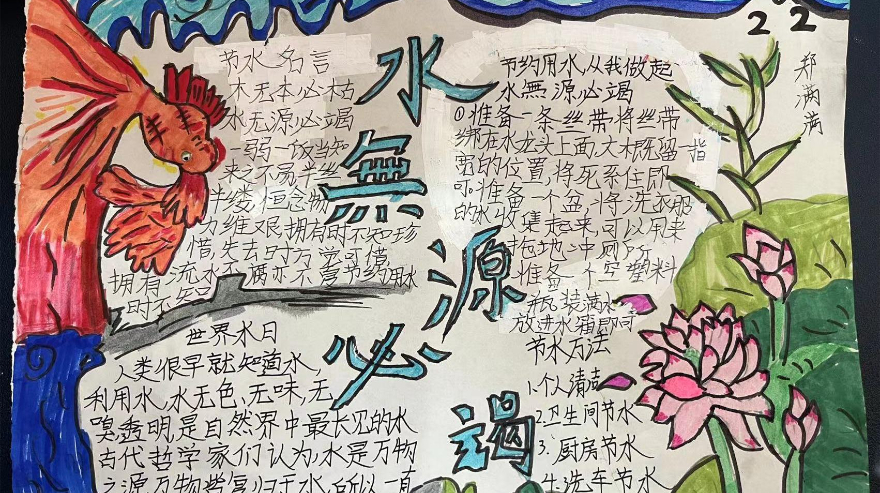 节水名言
木无本必枯
水无源必竭
一粥一饭当知
来之不易半丝
半缕恒念物
力维艰拥有时不知珍
惜失去时方学可惜
拥有 流水不腐亦不忘节约用水
时不知
世界水日
人类很早就知道水,
利用水,水无色、无味,无
嗅透明,是自然界中最长见的水
古代哲学家们认为,水是万物
之源,万物皆复归于水,所以一直
水無源必竭
节约用水,从我做起
水無源必竭
①准备一条丝带,将丝带
绑在水龙头上面,大概既留一指
宽的位置,将死系住即
可准备一个盆,将洗衣服
的水收集起来,可以用来
拖地、冲厕所
准备一个空塑料
瓶装满水
放进水箱即可
节水方法
1.个人清洁
2.卫生间节水
3.厨房节水
4.洗车节水
22
郑满满